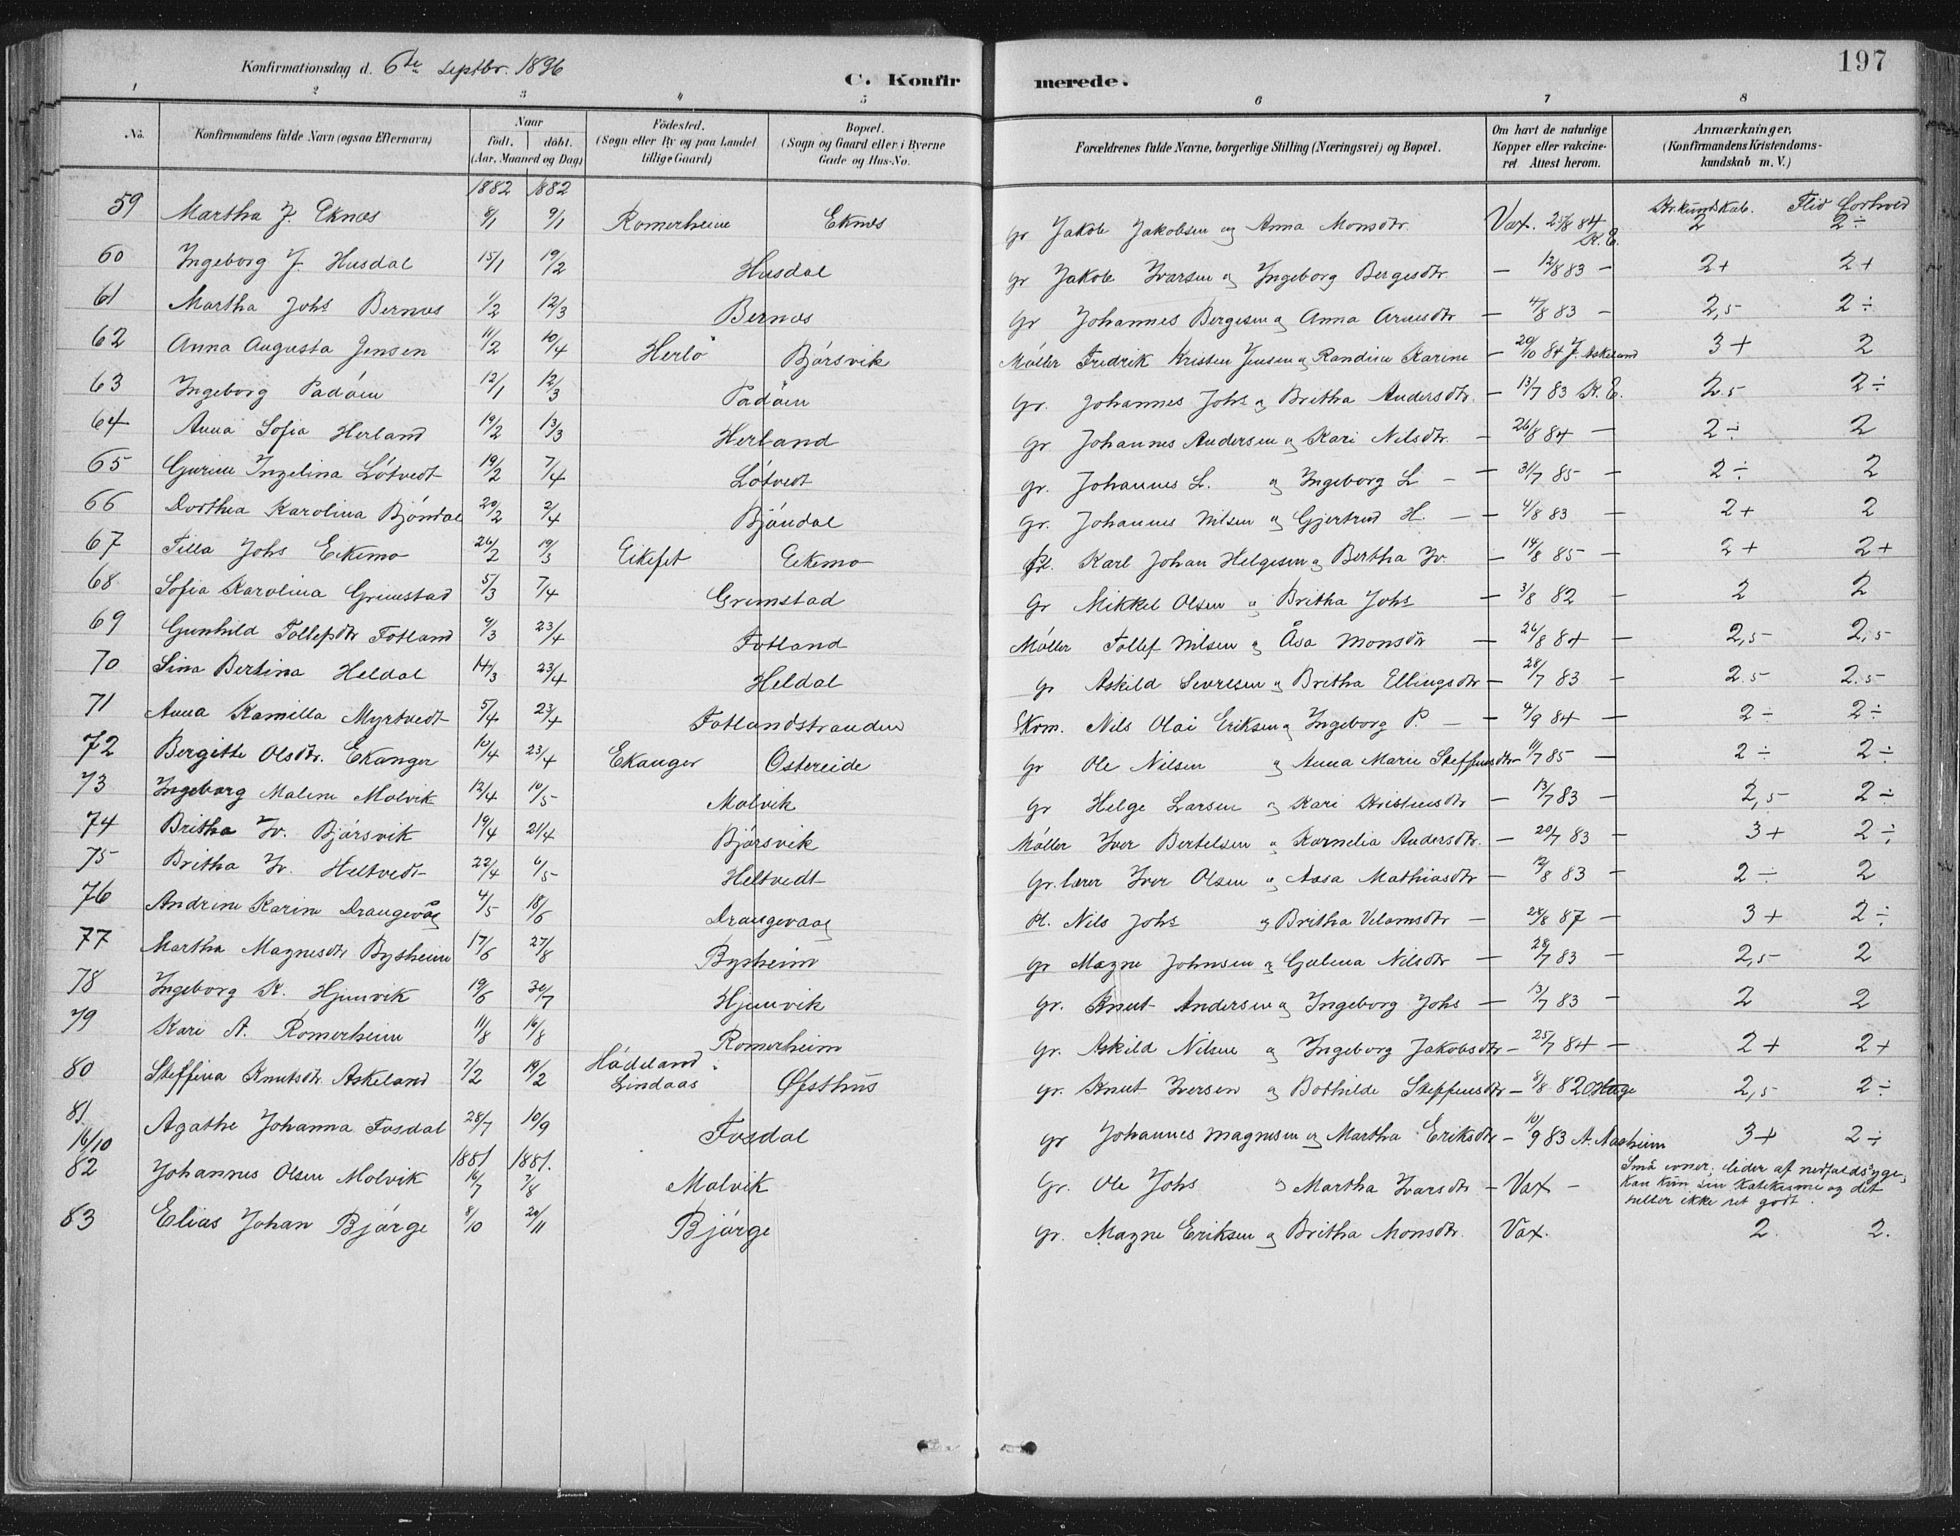 Konfirmationsdag d. 6te septbr. 1896
C. Konfirmerede.
197
1 2 3 4 5 6 7 8
No. | Konfirmandens fulde Navn (ogsaa Efternavn) | Naar født. døbt. (Aar, Maaned og Dag) | Fødested. (Sogn eller By og paa Landet tillige Gaard) | Bopæl. (Sogn og Gaard eller i Byerne Gade og Hus-No. | Forældrenes fulde Navne, borgerlige Stilling (Næringsvei) og Bopæl. | Om havt de naturlige Kopper eller vaccineret. Attest herom. | Anmærkninger. (Konfirmandens Kristendomskundskab m. V.)
1882 1882 Kr.kundskab. Flid & forhold
59 Martha J. Eknæs 8/1 9/1 Romerheim Eknæs Gr Jakob Jakobsen og Anna Monsdtr. Vax. 25/8 84 K. E. 2 2÷
60 Ingeborg J. Husdal 15/1 19/2 Husdal Gr Jakob Ivarsen og Ingeborg Bergesdtr – 12/8 83 – 2+ 2+
61 Martha Johs Bernæs 1/2 12/3 Bernæs Gr Johannes Bergesen og Anna Arnesdtr – 4/8 83 – 2,5 2÷
62 Anna Augusta Jensen 11/2 10/4 Herlö Bjórsvik Møller Fredrik Kristen Jensen og Randine Karine – 20/10 84 J. Askeland 3+ 2
63 Ingeborg Padöen 12/1 12/3 Padöen Gr. Johannes Johs og Britha Andersdtr. – 13/7 83 K. E. 2.5 2÷
64 Anna Sofia Herland 19/2 13/3 Herland Gr Johannes Andersen og Kari Nilsdtr. – 26/8 84 – 2÷ 2
65 Gurine Ingelina Lótvedt 19/2 7/4 Lótvedt Gr. Johannes L. og Ingeborg L – – 31/7 85 – 2÷ 2
66 Dorthea Karolina Bjóndal 20/2 2/4 Bjóndal Gr. Johannes Nilsen og Gjertrud H. – – 4/8 83 – 2+ 2
67 Tilla Johs Eikemo 26/2 19/3 Eikefet Eikemo Karl Johan Helgesen og Bertha Iv. – 14/8 85 – 2+ 2+
68 Sofia Karolina Grimstad 5/3 7/4 Grimstad Gr Mikkel Olsen og Britha Johs – 3/8 82 – 2 2
69 Gunhild Tollefsdtr Fotland 9/3 23/4 Fotland Møller Tollef Nilsen og Åsa Monsdtr – 26/8 84 – 2,5 2,5
70 Sina Bertina Heldal 14/3 23/4 Heldal Gr Askild Sevresen og Britha Ellingsdtr – 28/7 83 – 2.5 2.5
71 Anna Kamilla Myrtvedt 5/4 23/4 Fotlandstranden Skom. Nils Olai Eriksen og Ingeborg P. – – 4/9 84 – 2÷ 2÷
72 Bergitte Olsdtr. Ekanger 10/4 23/4 Ekanger Ostereide Gr Ole Nilsen og Anna Marie Steffensdtr – 11/7 85 – 2÷ 2÷
73 Ingeborg Malene Molvik 12/4 10/5 Molvik Gr Helge Larsen og Kari Kristensdtr – 13/7 83 – 2,5 2÷
74 Britha Iv. Bjórsvik 19/4 21/4 Bjórsvik Møller Iver Bertelsen og Kornelia Andersdtr. – 20/7 83 – 3+ 2÷
75 Britha Iv. Heltvedt 22/4 6/5 Heltvedt Gr. lærer Iver Olsen og Aasa Mathiasdtr – 12/8 83 – 2÷ 2
76 Andrine Karine Draugevåg 4/5 18/6 Draugevaag Pl. Nils Johs og Britha Velamsdtr – 28/8 87 – 3+ 2÷
77 Martha Magnesdtr Bysheim 17/6 27/8 Bysheim Gr Magne Johnsen og Galena Nilsdtr – 28/7 83 – 2,5 2
78 Ingeborg K. Hjemvik 19/6 30/7 Hjemvik Gr. Knut Andersen og Ingeborg Johs – 13/7 83 – 2 2
79 Kari A. Romerheim 11/8 16/8 Romerheim Gr. Askild Nilsen og Ingeborg Jakobsdtr – 25/7 84 – 2+ 2+
80 Steffina Knutsdtr. Askeland 7/2 19/2 Hódeland. Lindaas Øfsthus Gr. Knut Iversen og Bothilde Steffensdtr – 8/8 82 2,5 2÷
81. Agathe Johanna Fosdal 28/7 10/9 Fosdal Gr Johannes Magnesen og Martha Eriksdtr – 10/9 83 A. Aasheim 3+ 2÷
16/10 1881 1881.
82 Johannes Olsen Molvik 16/7 7/8 Molvik Gr. Ole Johs og Martha Ivarsdtr – Vax – Små evner; lider af nedfaldssyge, kan kun sin katekisme og det heller ikke ret godt.
83 Elias Johan Bjórge 8/10 20/11 Bjórge Gr. Magne Eriksen og Britha Monsdtr. Vax. 2 2.